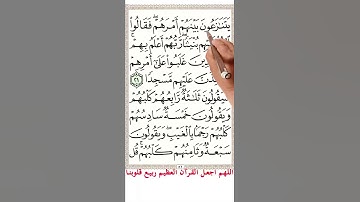 يَتَنَٰزَعُونَ بَيْنَهُمْ أَمْرَهُمْ ۖ فَقَالُوا۟
بُنْيَٰنًا ۖ رَّبُّهُمْ أَعْلَمُ بِهِمْ
غَلَبُوا۟ عَلَىٰٓ أَمْرِهِمْ
عَلَيْهِم مَّسْجِدًا ٢١
سَيَقُولُونَ ثَلَٰثَةٌ رَّابِعُهُمْ كَلْبُهُمْ
وَيَقُولُونَ خَمْسَةٌ سَادِسُهُمْ
كَلْبُهُمْ رَجْمًۢا بِٱلْغَيْبِ ۖ وَيَقُولُونَ
سَبْعَةٌ وَثَامِنُهُمْ كَلْبُهُمْ ۚ قُل
اللهم اجعل القرآن العظيم ربيع قلوبنا